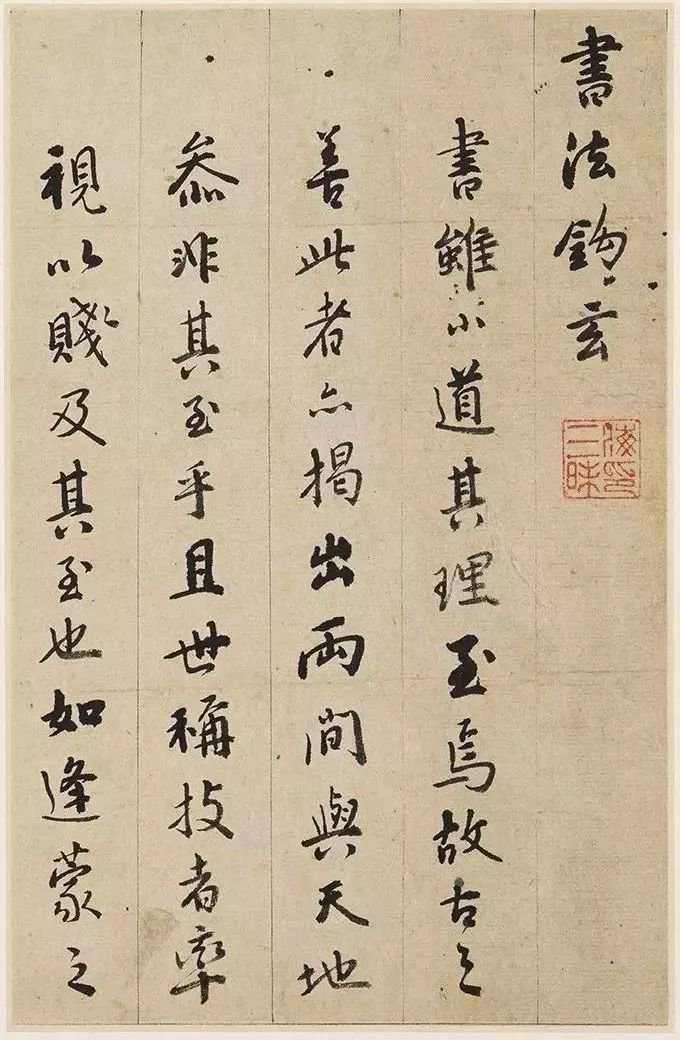 書法鉤玄
書雖小道其理至焉故古之
善此者亦揭出兩間與天地
叅非其至乎且世稱技者率
視以賤及其至也如逢蒙之
海印三昧